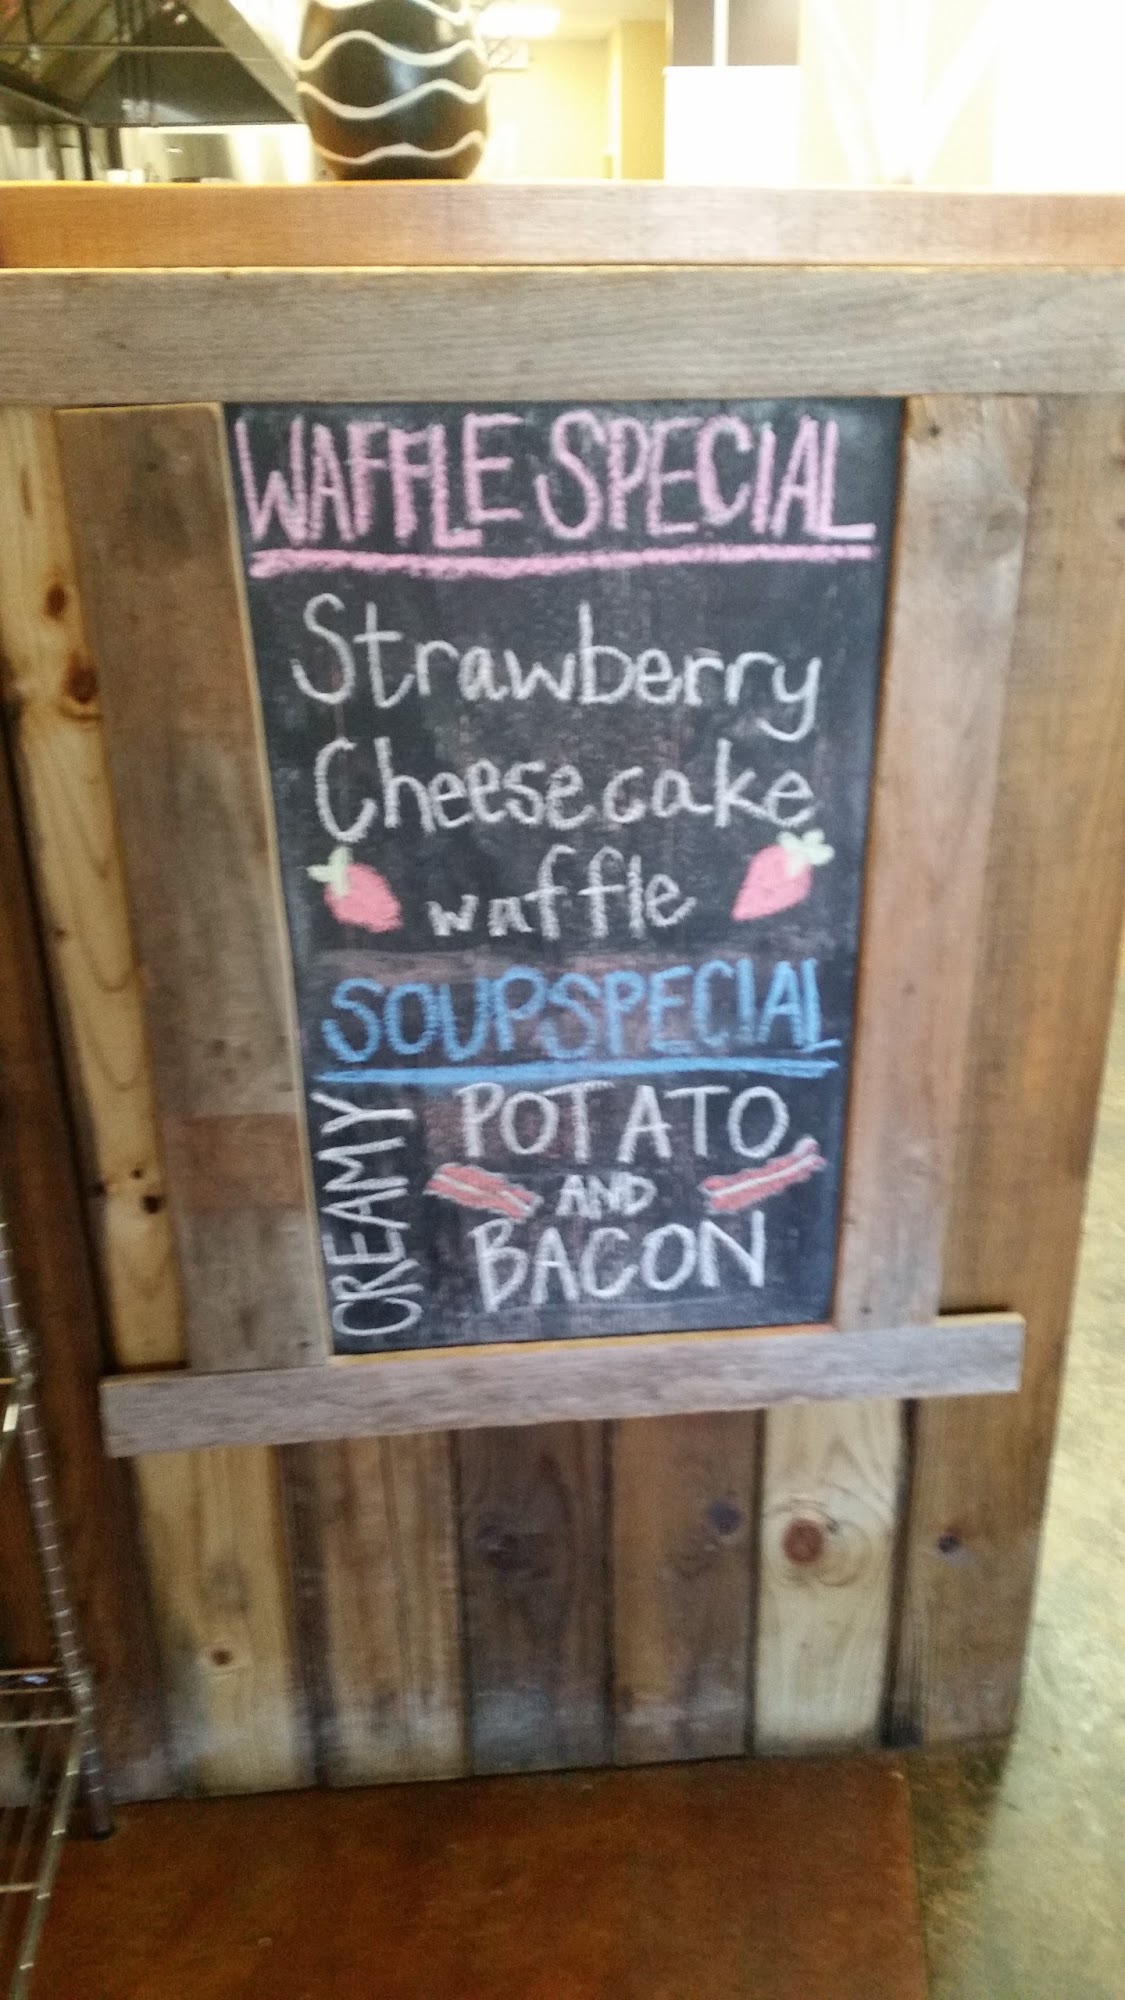 WAFFLE SPECIAL
Strawberry
Cheesecake
waffle
SOUP SPECIAL
CREAMY
POTATO
AND
BACON